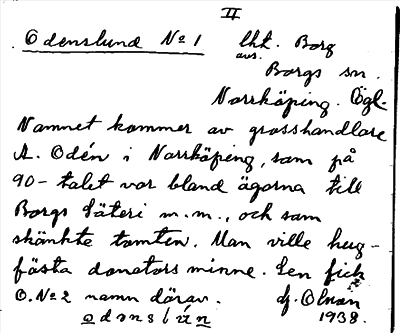 II
Odenslund No 1 lht. Borg
avs.
Borgs sn.
Norrköping. Ögl.
Namnet kommer av grosshandlare
A. Odén i Norrköping, som på
90-talet var bland ägarna till
Borgs säteri m.m., och som
skänkte tomten. Man ville hug-
fästa donators minne. Sen fick
O. No 2 namn därav. dj. Olman
1938.